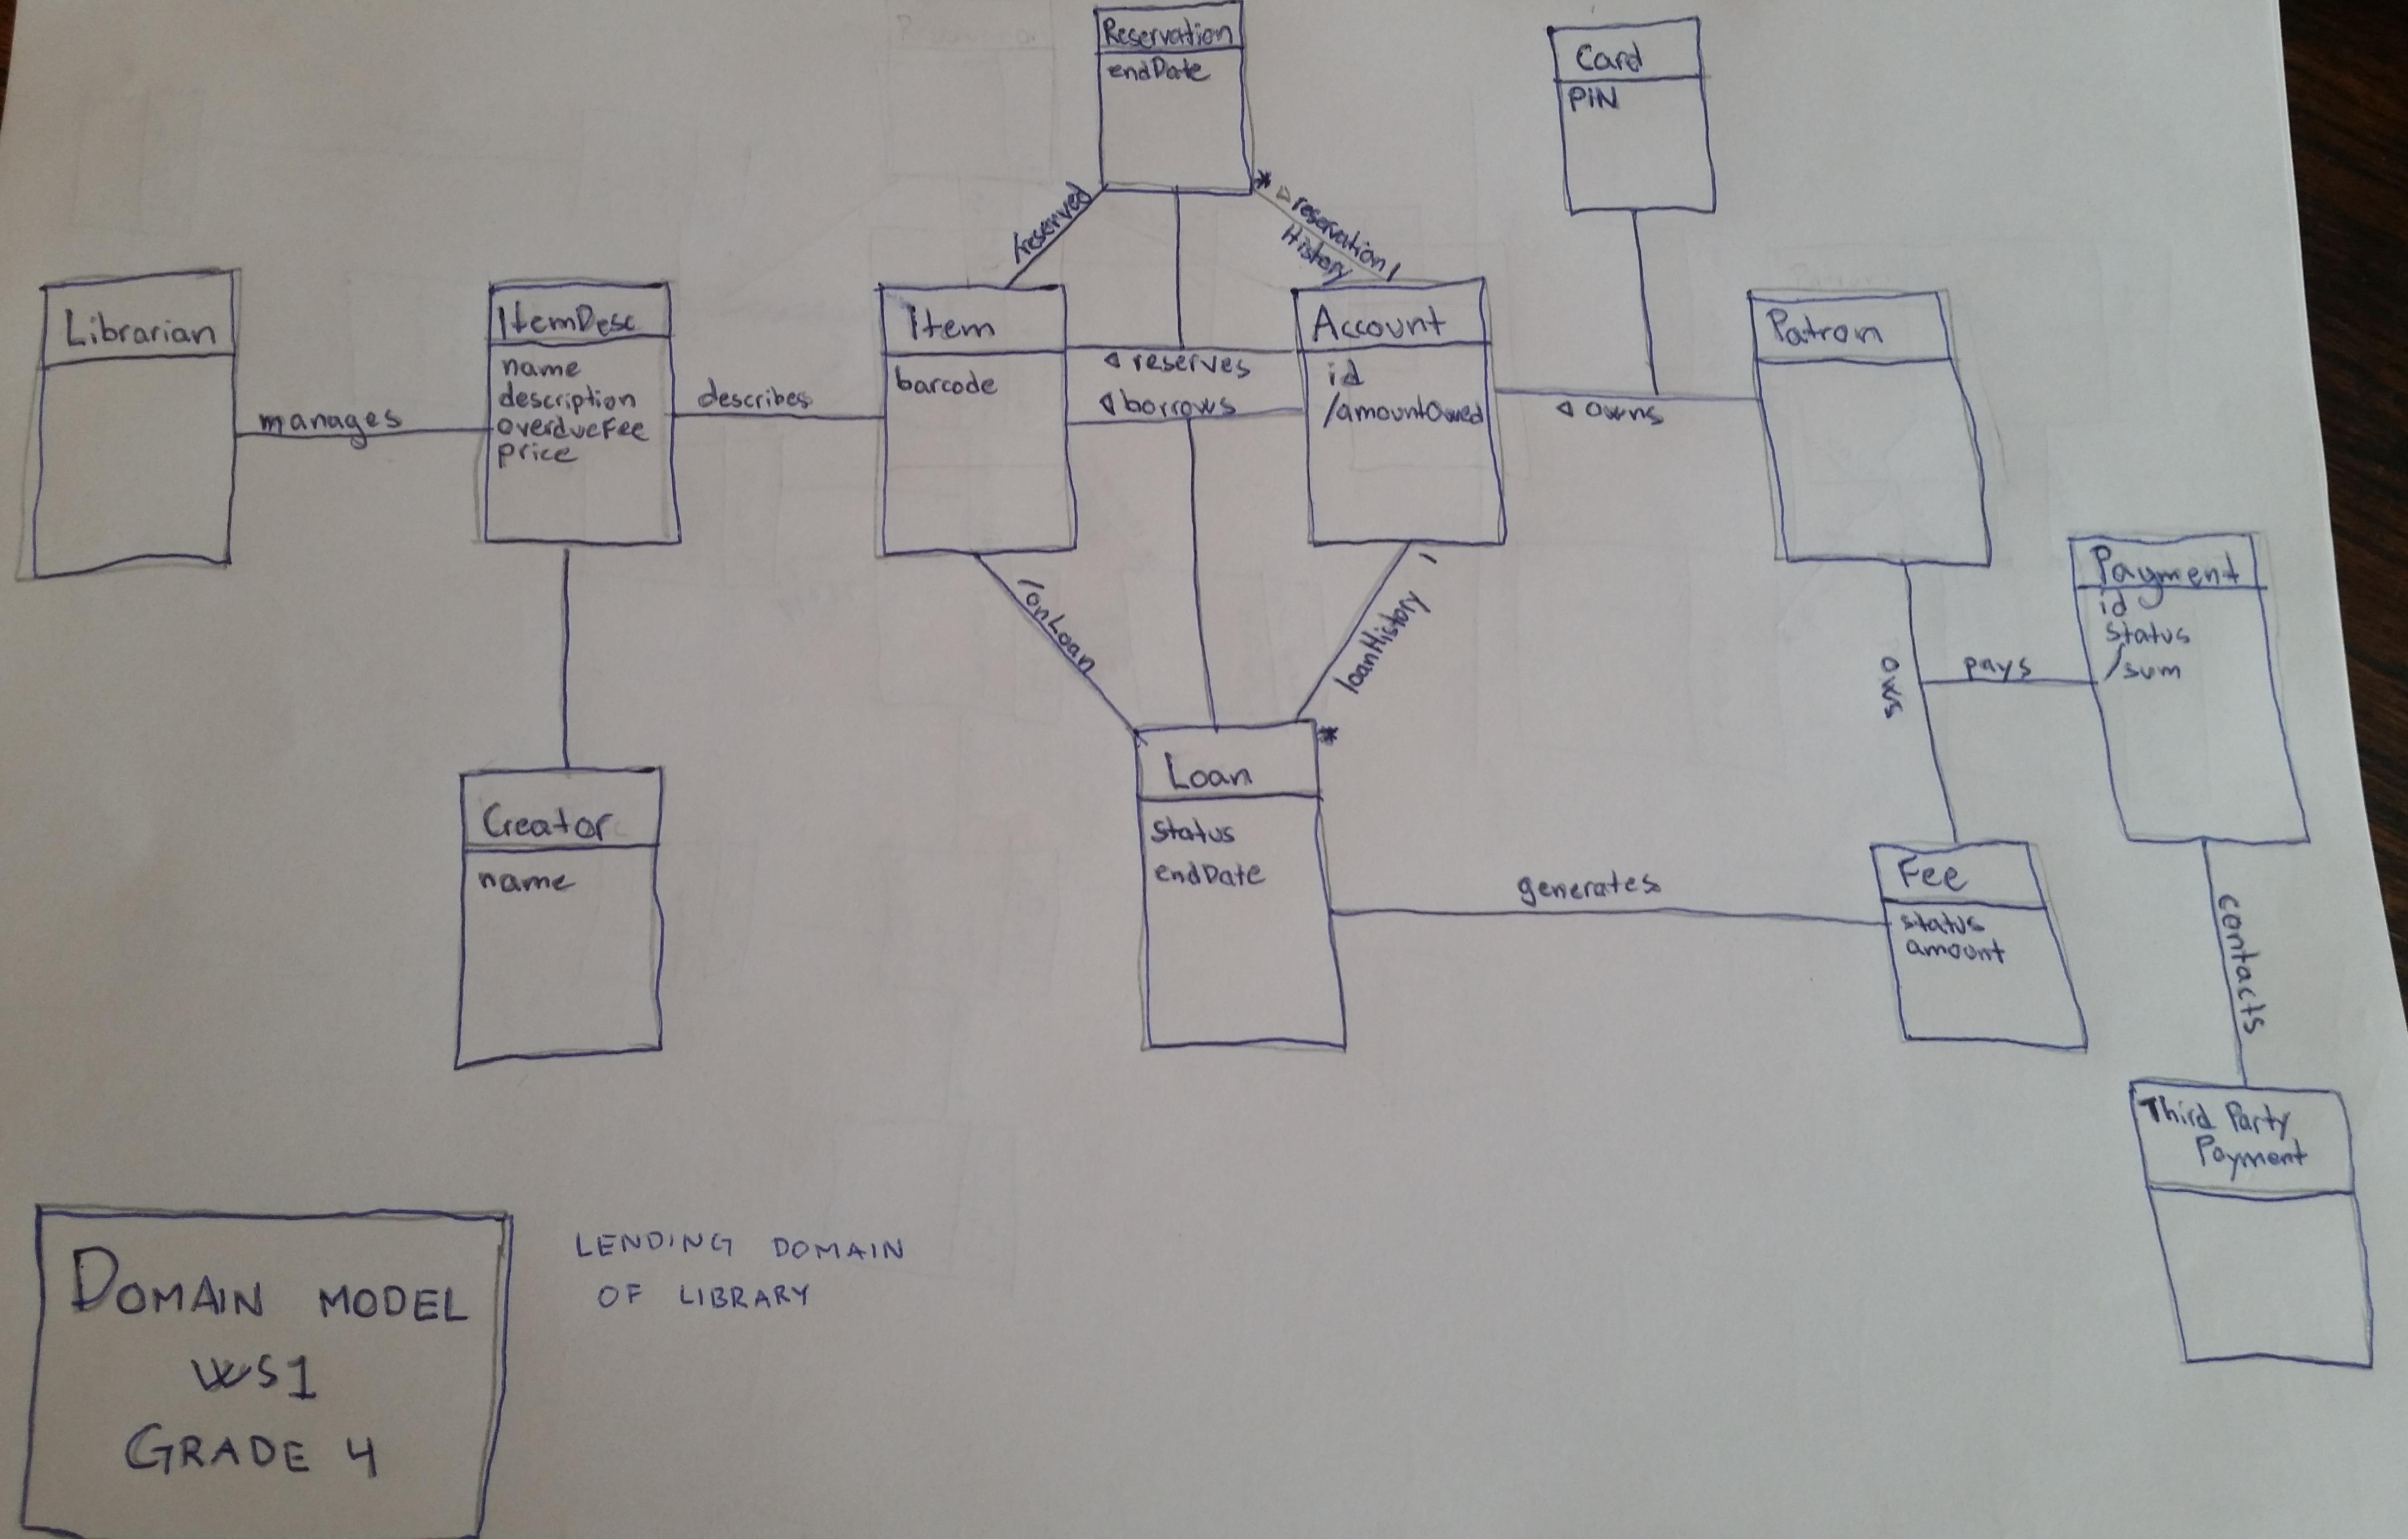 Reservation
endDate
Card
PIN
/reserved
*
◁ reservation
History
1
Librarian
manages
ItemDesc
name
description
overdueFee
price
describes
Item
barcode
◁ reserves
◁ borrows
Account
id
/amountOwed
◁ owns
Patron
/onLoan
1
loanHistory
*
ows
pays
Payment
id
status
/sum
Creator
name
Loan
status
endDate
generates
Fee
status
amount
contacts
Third Party
Payment
DOMAIN MODEL
WS1
GRADE 4
LENDING DOMAIN
OF LIBRARY